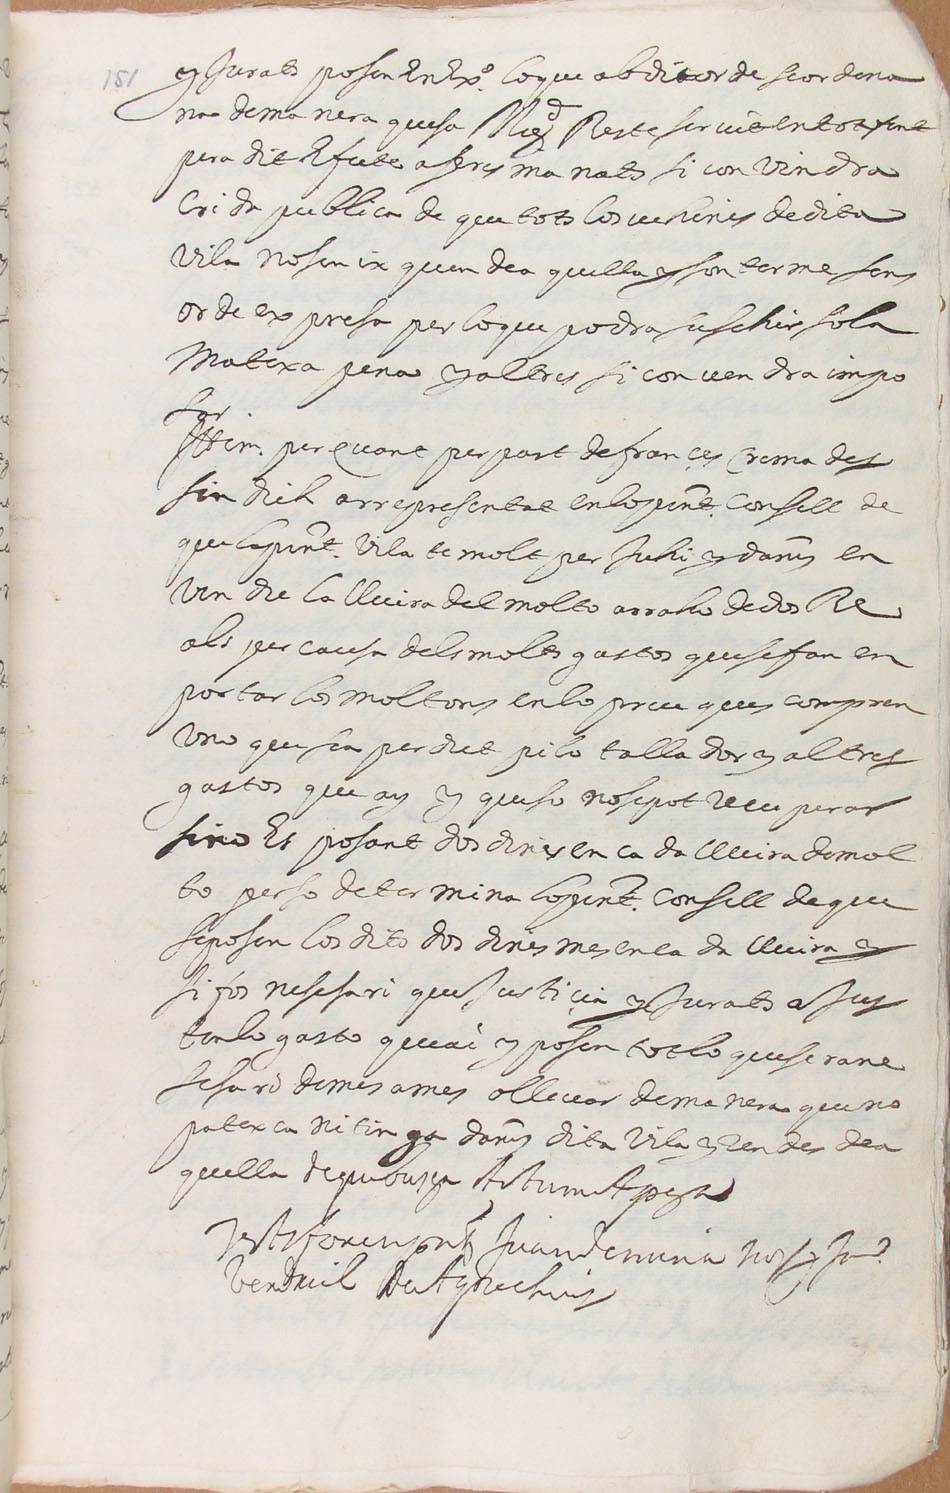 151
y Jurats posen En Exo. lo que ab dit orde se ordena
na de manera que sa Magd Reste servit en tot fent
pera dit Efecte asigmanats si convindra
Crida publica de que tots los vehins de dita
Vila no sen ixquen de aquella y son terme sens
orde expresa per lo que podra suschir so la
Mateixa pena y altres si convendra impo
sar
Ittim. per quant per part de frances Cremades
sindich a rrepresentat en lo pnt. Consell de
que la pnt. Vila te molt perjuhi y dany en
vindre la lliura del molto a rraho de dos Re
als per causa dels molts gastos que se fan en
portar los moltons en lo preu ques compren
uno que sen perdut pilo tallador y altres
gastos que ay y que so no se pot recuperar
sino Es posant dos diners en cada lliura de mol
to per so determina lo pnt. Consell de que
se posen los dits dos dines mes en cada lliura y
si fos nesesari que Justicia y Jurats ajus
ten lo gasto que ai y posen tot lo que sera ne
sesari de mes a mes o llevar de manera que no
patexca ni tinga dany dita Vila y Rendes de a
quella de quibus ett Actum Agost
Testes foren pnts Juan Denuvia Nots y Jno
Vendrell de Agost vehins